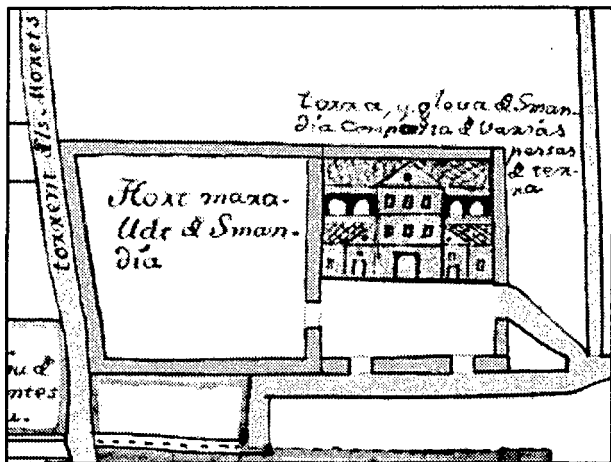 torrent dls. Morets
torra, y oloua d Sman-
día Compendia d varias
persas
d ter-
ra
Hort mara-
llde d Sman-
día
d
ntes